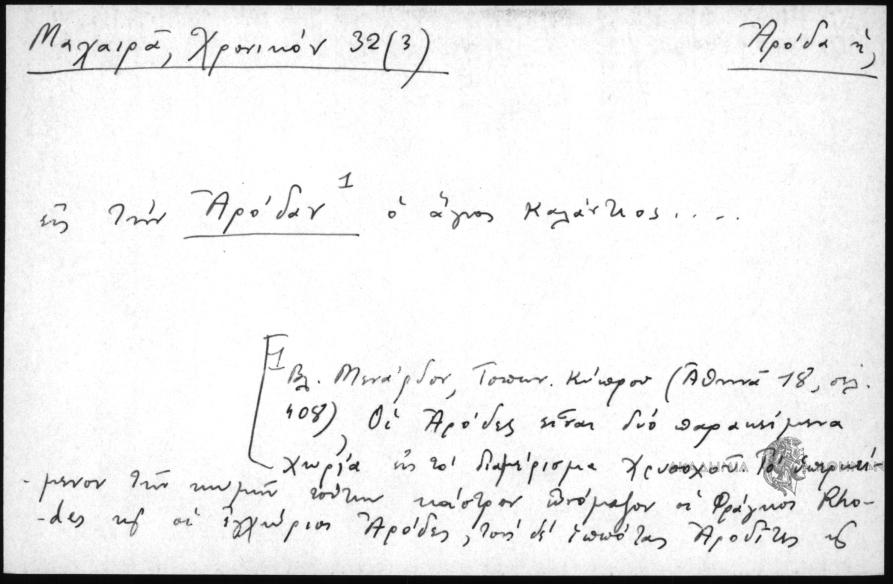 Μαχαιρᾶ, Χρονικόν 32(3)
Ἀρόδα ἡ,
εἰς τὴν Ἀρόδαν¹ ὁ ἅγιος Καλάντιος....
[1 Βλ. Μενάρδον, Τοπων. Κύπρου (Ἀθηνᾶ 18, σελ.
408), Οἱ Ἀρόδες εἶναι δύο παρακείμενα
χωρία εἰς τὸ διαμέρισμα Χρυσοχοῦ. Τὸ ὑπερκεί-
-μενον τῶν κωμῶν τούτων κάστρον ὠνόμαζον οἱ Φράγκοι Rho-
-des κ͵ οἱ ἐγχώριοι Ἀρόδες, τοὺς δὲ ἱππότας Ἀροδίτες κ͵